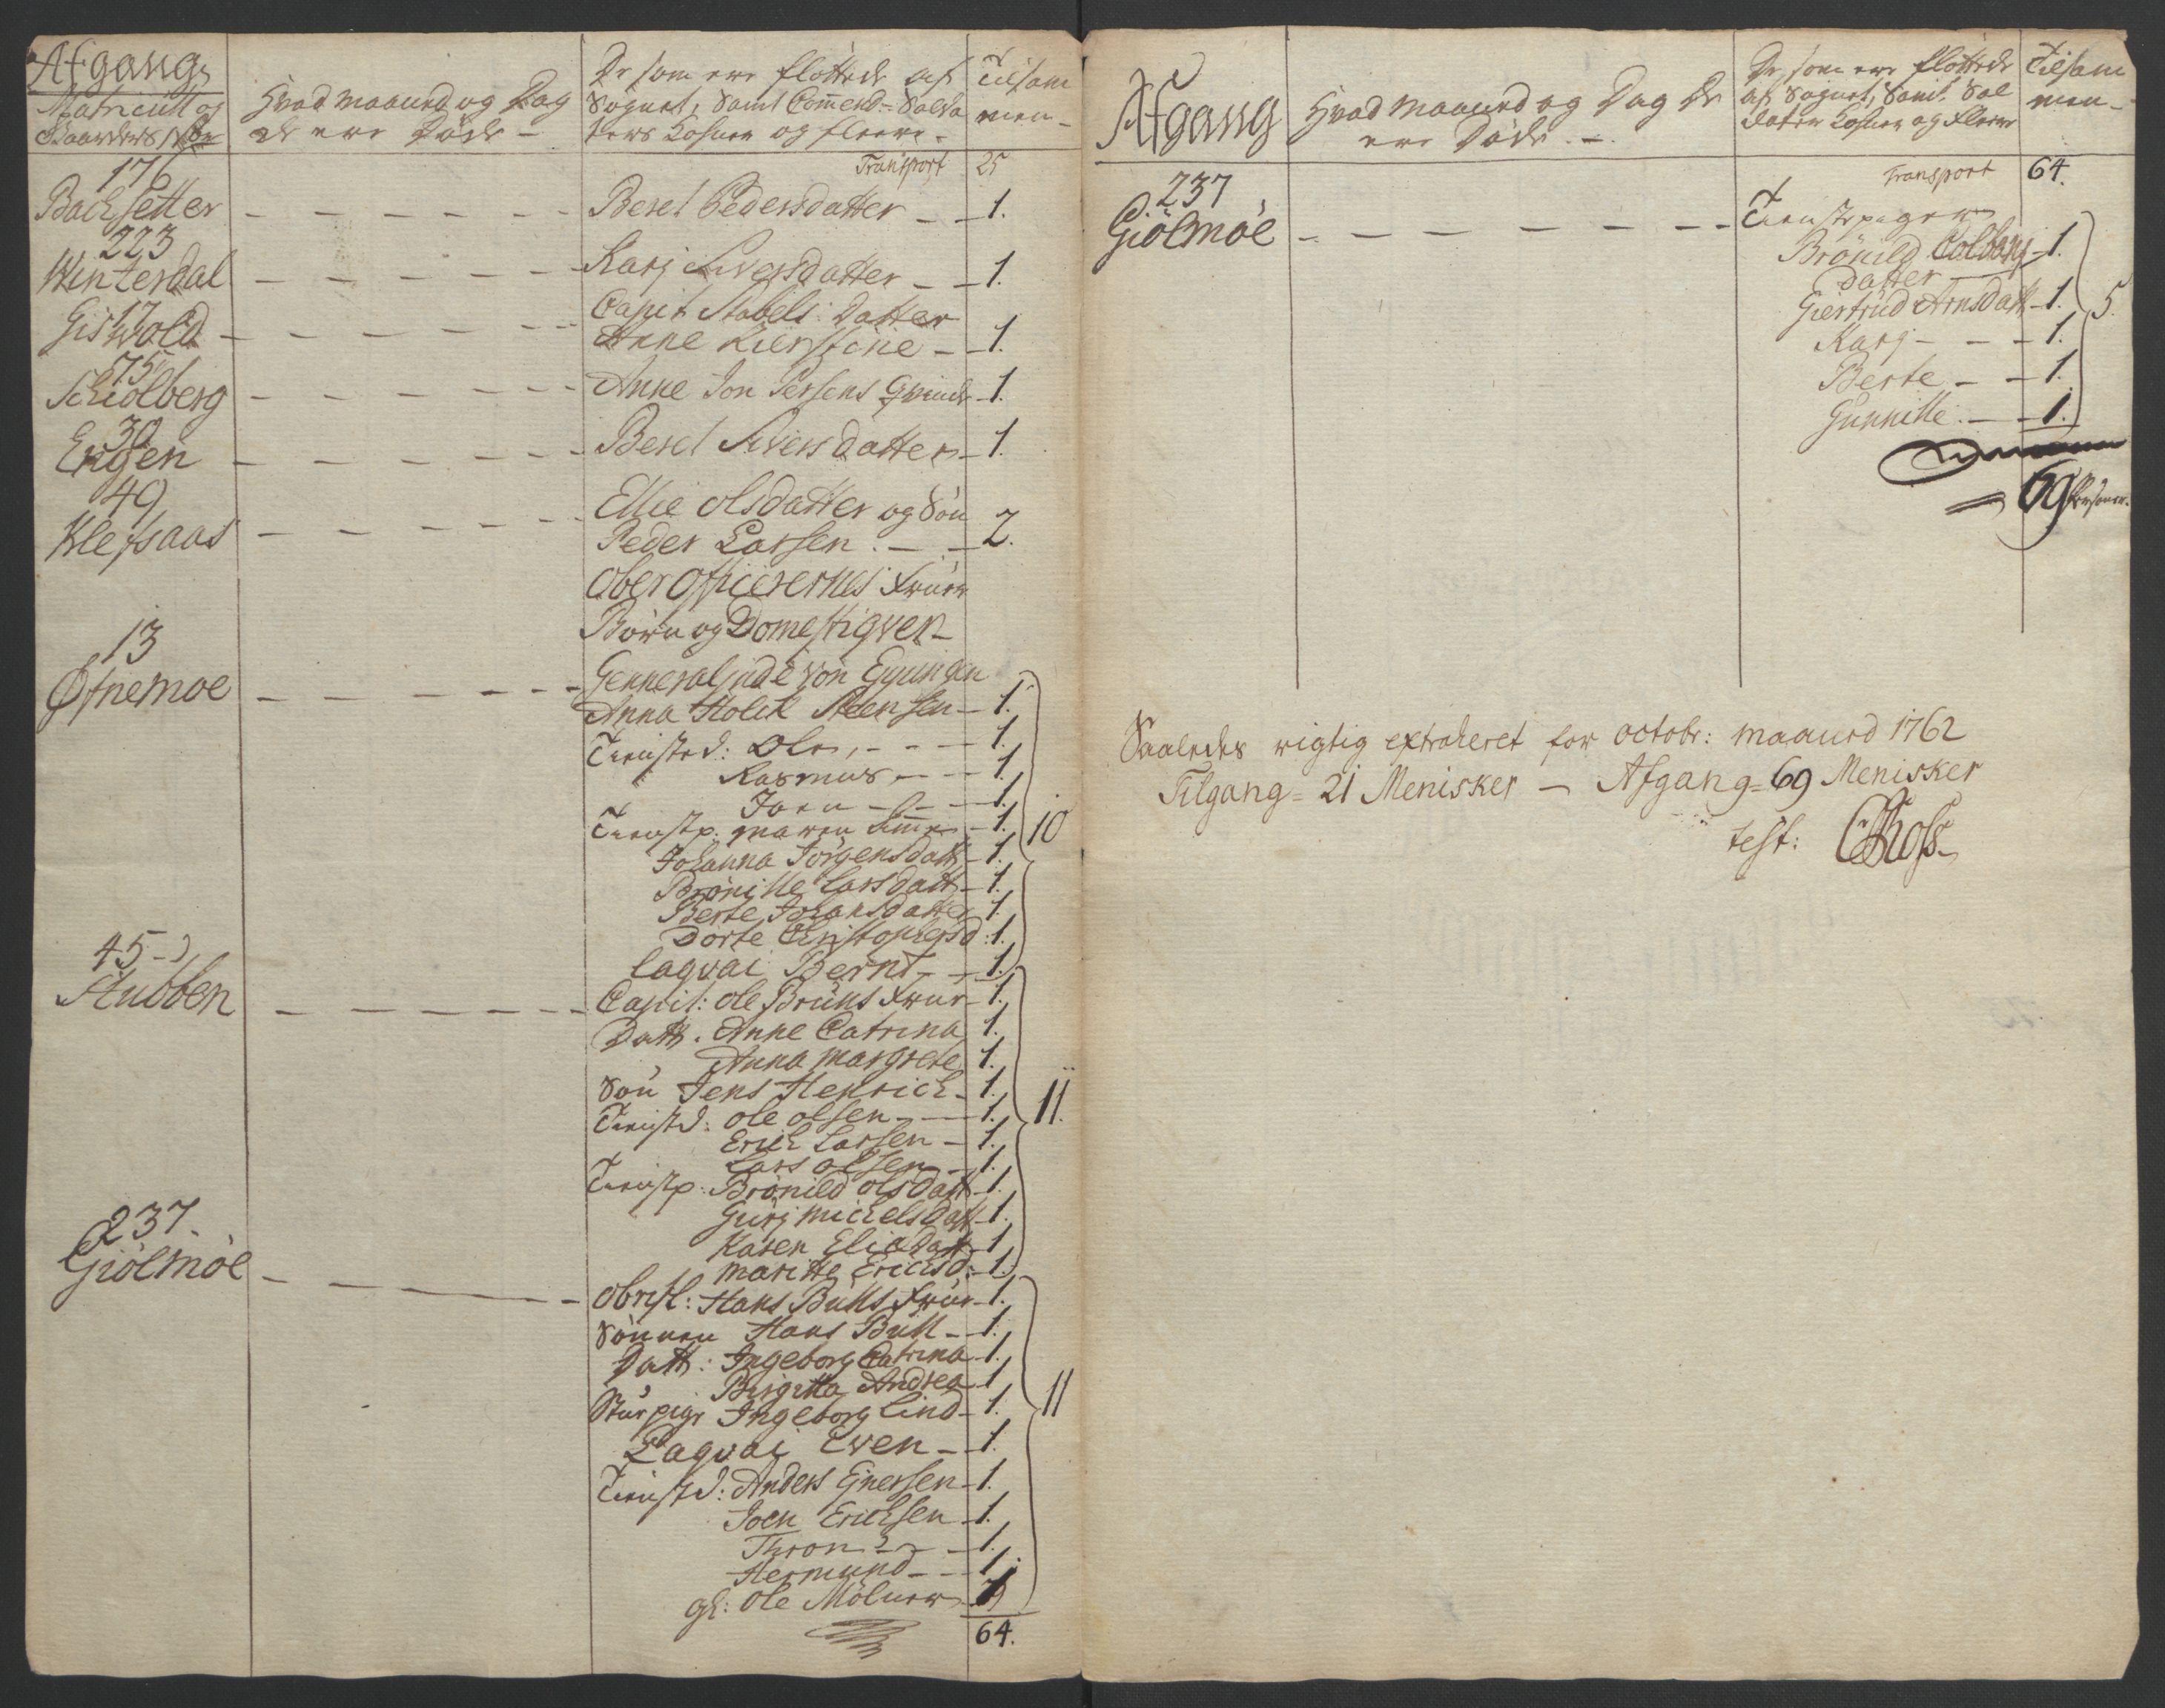 Afgang
Matricull og
Gaarders No
Hvad maaned og Dag
de ere Døde -
De som ere fløttede af
Sognet, Samt Com̄end= Solda
ters Kohner og fleere.
Tilsam
men -
Transport 25
176
Bachsetter - - - - - - Berel Pedersdatter - - 1.
223
Winterdal - - - - - - Karj Siversdatter - - 1.
17
Giswold - - - - - - Capit Stabels: Datter
Anne Kierstine - - 1.
75
Schiolberg - - - - - - Anne Jon Persens Qvinde - 1.
30
Engen - - - - - - Berel Sivers datter - 1.
49
Klefsaas - - - - - - Ellie Olsdatter og Søn
Peder Larsen. - - 2.
Ober Officerernes Fruer
Børn og Domestiqver -
13
Øfnemoe - - - - - - Generalinde von Eppingen
Anna Holck Steensen - 1.
Tienisted: Ole, - - - 1.
Rasmus - - - 1.
Joen - - - 1.
Tienistp. maren - 1. 10
Johanna Jörgensdatt - 1.
Brönille Larsdatt - 1.
Berte Johansdatter 1.
Dorte Christophersd: 1.
Laqvai Bernt - - 1.
45
Stubben - - - - - - Capit: Ole Brüns Frue - 1.
Datt. Anne Catrina 1.
Anna Margrete 1.
Søn Jens Henrich - 1.
Tienistd: Ole Olsen - - 1. 11.
Erich Larsen - 1.
Lars Olsen - 1.
Tienistp: Brönild Olsdatt - 1.
Gurj Michelsdatt - 1.
Karen Eliadatt - 1.
Maritte Erichsd: - 1.
237
Giölmöe - - - - Obrist: Hans Bülls Frue - 1.
Sønnen Hans Büll - 1.
Datt: Ingeborg Catrina - 1.
Birgitta Andrea - 1.
Stuepige Ingeborg Lind - 1. 11
Laqvai Even - - 1.
Tienistd: Anders Ejnersen - 1.
Joen Erichsen - 1.
Thron - - - 1.
Hermund - - - 1.
gl: Ole Mölner - 1
64.
Afgang
Hvad Maaned og Dag De
ere Døde. -.
De som ere fløttede
af Sognet, Samt Sol
daters Kohner og fleere
Tilsam
men -
Transport 64.
237
Giölmöe - - - - - - - Tienistepiger
Brönild Colbens - 1.
datter
Giertrüd Arnsdatt - 1. 5.
Karj - - - 1.
Berte - - 1.
Gunnille. - - 1.
= 69 Personer.
Saaledes rigtig extraheret for octobr: maaned 1762
Tilgang = 21 Menisker - Afgang = 69 Menisker
test: CRoss